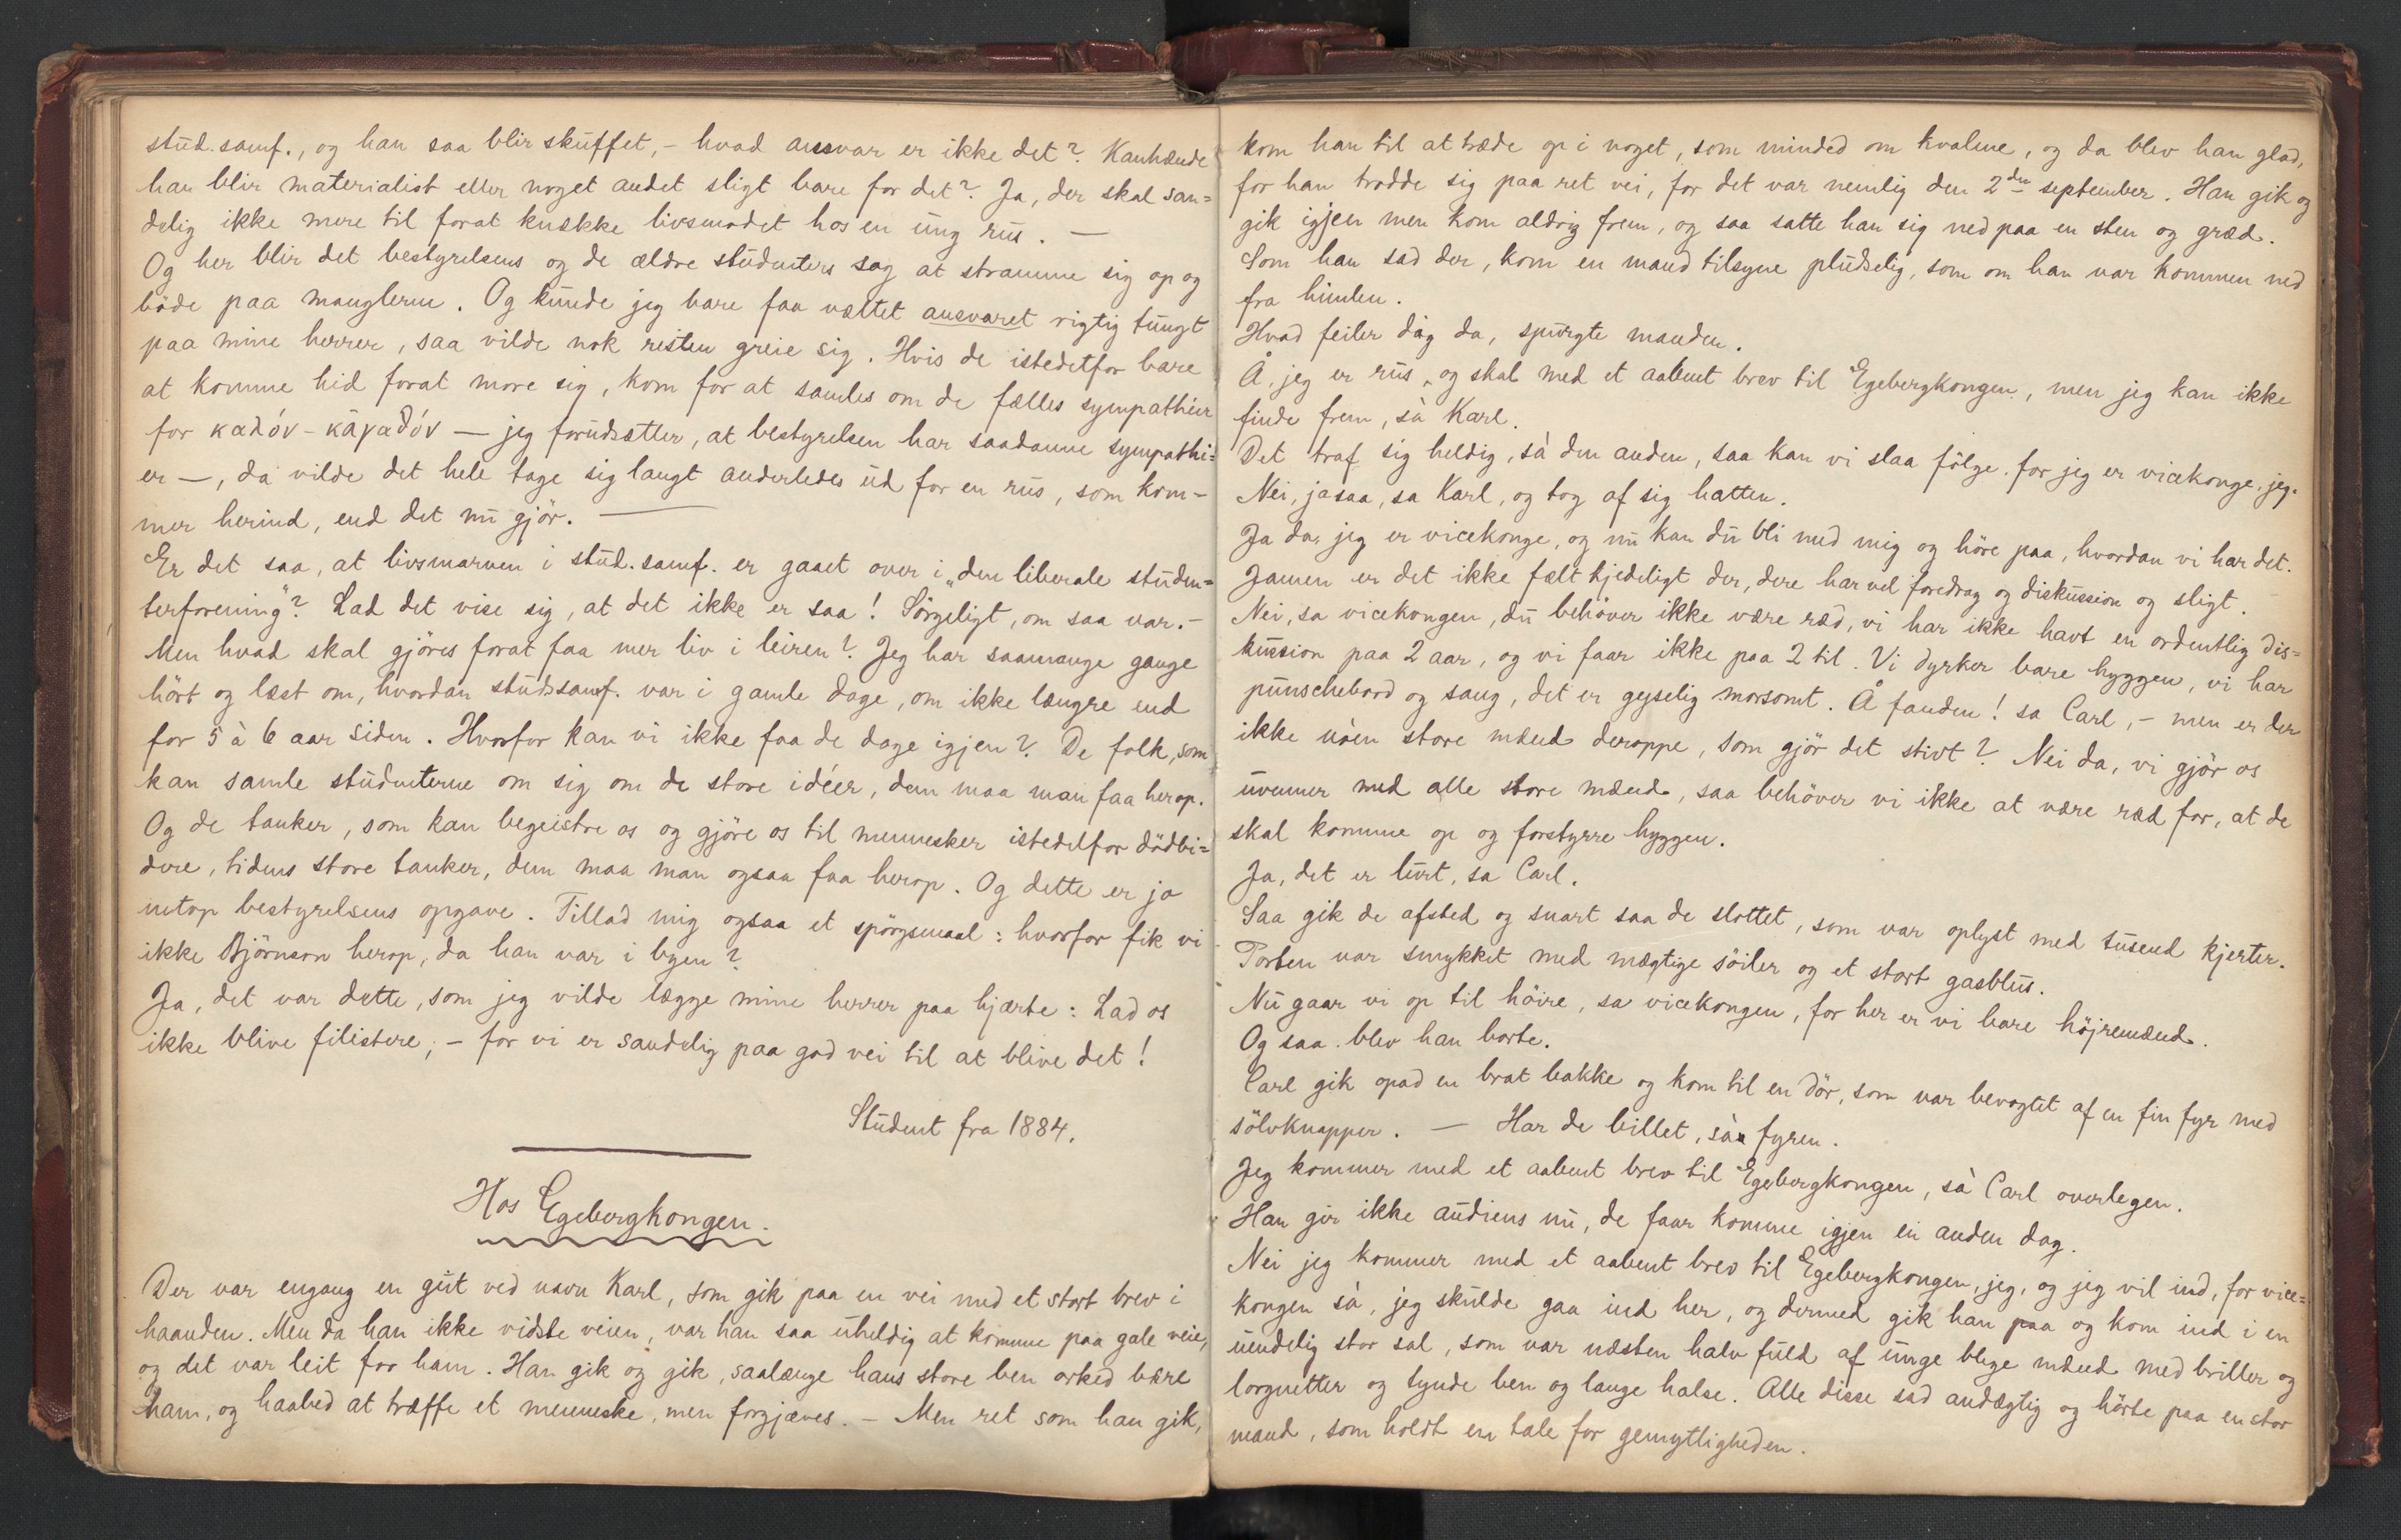 stud. samf., og han saa blir skuffet, - hvad ansvar er ikke det? Kanhænde
han blir materialist eller noget andet sligt bare for det? Ja, der skal san=
delig ikke mere til forat knække livsmodet hos en ung rus. —
Og her blir det bestyrelsens og de ældre studenters sag at stramme sig op og
böde paa manglerne. Og kunde jeg bare faa væltet ansvaret rigtig tungt
paa mine herrer, saa vilde nok resten greie sig. Hvis de istedetfor bare
at komme hid forat more sig, kom for at samles om de fælles sympathier
for καλόν-κἀγαθόν — jeg forudsætter, at bestyrelsen har saadanne sympathi=
er —, da vilde det hele tage sig langt anderledes ud for en rus, som kom-
mer herind, end det nu gjör. —
Er det saa, at livsmarven i stud. samf. er gaaet over i „den liberale studen=
terforening"? Lad det vise sig, at det ikke er saa! Sörgeligt, om saa var. -
Men hvad skal gjöres forat faa mer liv i leiren? Jeg har saamange gange
hört og læst om, hvordan studssamf. var i gamle dage, om ikke længre end
for 5 à 6 aar siden. Hvorfor kan vi ikke faa de dage igjen? De folk, som
kan samle studenterne om sig om de store idéer, dem maa man faa herop.
Og de tanker, som kan begeistre os og gjöre os til mennesker istedetfor dödbi=
dere, tidens store tanker, dem maa man ogsaa faa herop. Og dette er jo
netop bestyrelsens opgave. Tillad mig ogsaa et spörgsmaal: hvorfor fik vi
ikke Björnson herop, da han var i byen?
Ja, det var dette, som jeg vilde lægge mine herrer paa hjærte: Lad os
ikke blive filistere; - for vi er sandelig paa god vei til at blive det!
Student fra 1884.
Hos Egebergkongen.
Der var engang en gut ved navn Karl, som gik paa en vei med et stort brev i
haanden. Men da han ikke vidste veien, var han saa uheldig at komme paa gale veie,
og det var leit for ham. Han gik og gik, saalænge hans store ben orked bære
ham, og haabed at træffe et menneske, men forgjæves. - Men ret som han gik,
kom han til at træde op i noget, som minded om kvalme, og da blev han glad,
for han trodde sig paa ret vei, for det var nemlig den 2den september. Han gik og
gik igjen men kom aldrig frem, og saa satte han sig ned paa en sten og græd.
Som han sad der, kom en mand tilsyne pludselig, som om han var kommen ned
fra himlen.
Hvad feiler dig da, spurgte manden.
Å, jeg er rus, og skal med et aabent brev til Egebergkongen, men jeg kan ikke
finde frem, sà Karl.
Det traf sig heldig, sà den anden, saa kan vi slaa fölge. for jeg er vicekonge, jeg.
Nei, jasaa, sa Karl, og tog af sig hatten.
Ja da, jeg er vicekonge, og nu kan du bli med mig og höre paa, hvordan vi har det.
Jamen er det ikke fælt kjedeligt der, dere har vel foredrag og diskussion og sligt.
Nei, sa vicekongen, du behöver ikke være ræd, vi har ikke havt en ordentlig dis=
kussion paa 2 aar, og vi faar ikke paa 2 til. Vi dyrker bare hyggen, vi har
punschebord og sang, det er gyselig morsomt. Å fanden! sa Carl, - men er der
ikke nòen store mænd deroppe, som gjör det stivt? Nei da, vi gjör os
uvenner med alle store mænd, saa behöver vi ikke at være ræd for, at de
skal komme op og forstyrre hyggen.
Ja, det er lurt, sa Carl.
Saa gik de afsted og snart saa de slottet, som var oplyst med tusend kjerter.
Porten var smykket med mægtige söiler og et stort gasblus.
Nu gaar vi op til höire, sa vicekongen, for her er vi bare höjremænd.
Og saa blev han borte.
Carl gik opad en brat bakke og kom til en dör, som var bevogtet af en fin fyr med
sölvknapper. — Har de billet, sà fyren.
Jeg kommer med et aabent brev til Egebergkongen, sà Carl overlegen.
Han gir ikke audiens nu, de faar komme igjen en anden dag.
Nei jeg kommer med et aabent brev til Egebergkongen, jeg, og jeg vil ind, for vice=
kongen sà, jeg skulde gaa ind her, og dermed gik han paa og kom ind i en
uendelig stor sal, som var næsten halv fuld af unge blege mænd med briller og
lorgnetter og tynde ben og lange halse. Alle disse sad andægtig og hörte paa en stor
mand, som holdt en tale for gemytligheden.